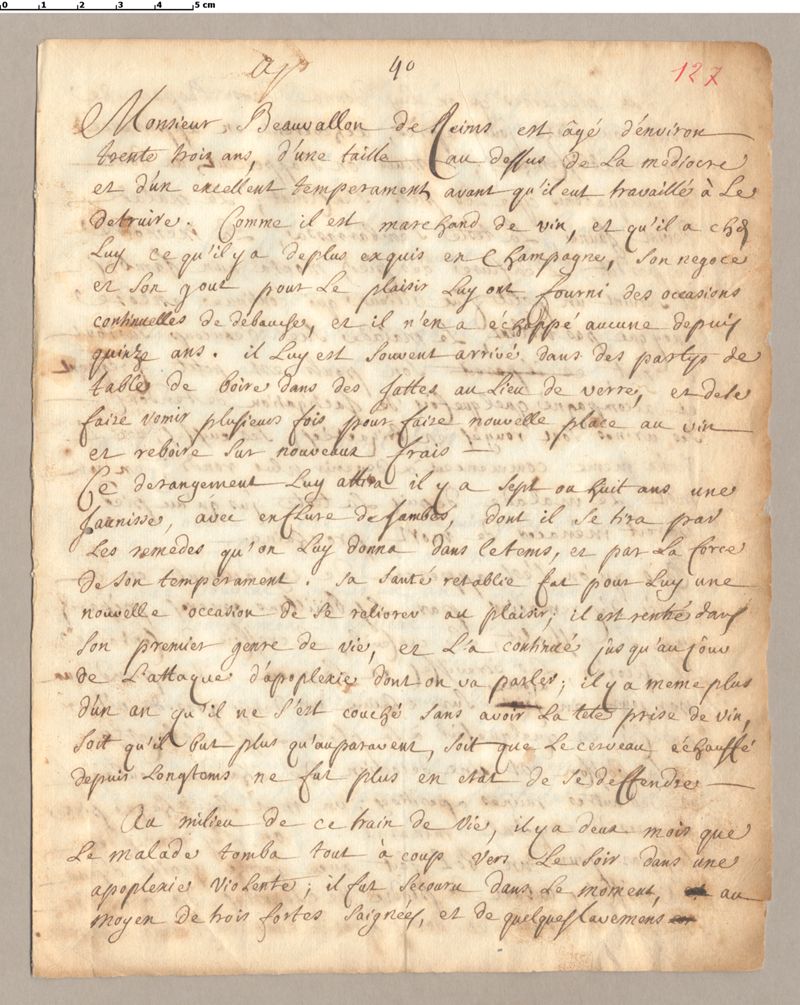 0 1 2 3 4 5 cm
ap 40 127
Monsieur Beauvallon de Reims est âgé d'environ
trente trois ans, d'une taille au dessus de La mediocre
et d'un excellent temperament, avant qu'il eut travaillé à Le
detruire. Comme il est marchand de vin, et qu'il a chez
Luy ce qu'il y a deplus exquis en Champagne, Son negoce
et Son gout pour Le plaisir Luy ont fourni des occasions
continuelles de debauche, et il n'en a échappé aucune depuis
quinze ans. il Luy est Souvent arrivé dans des partys de
table de boire dans des Jattes au Lieu de verre, et de se
faire vomir plusieurs fois pour faire nouvelle place au vin
et reboire Sur nouveaux frais —
Ce derangement Luy attira il y a Sept ou huit ans une
Jaunisse, avec enflure de Jambes, dont il se tira par
Les remedes qu'on Luy donna dans letems, et par La force
de Son temperament. Sa Santé retablie fut pour Luy une
nouvelle occasion de Se relivrer au plaisir; il est rentré dans
Son premier genre de vie, et L'a continué jusqu'au jour
de L'attaque d'apoplexie dont on va parler; il y a meme plus
d'un an qu'il ne S'est couché Sans avoir La tete prise de vin,
Soit qu'il but plus qu'auparavent, Soit que Le cerveau échauffé
depuis Longtems ne fut plus en etat de Se deffendre —
Au milieu de ce train de vie, il y a deux mois que
Le malade tomba tout à coup vers Le Soir dans une
apoplexie violente; il fut Secouru dans Le moment, au
moyen de trois fortes Saignées, et de quelques Lavemens